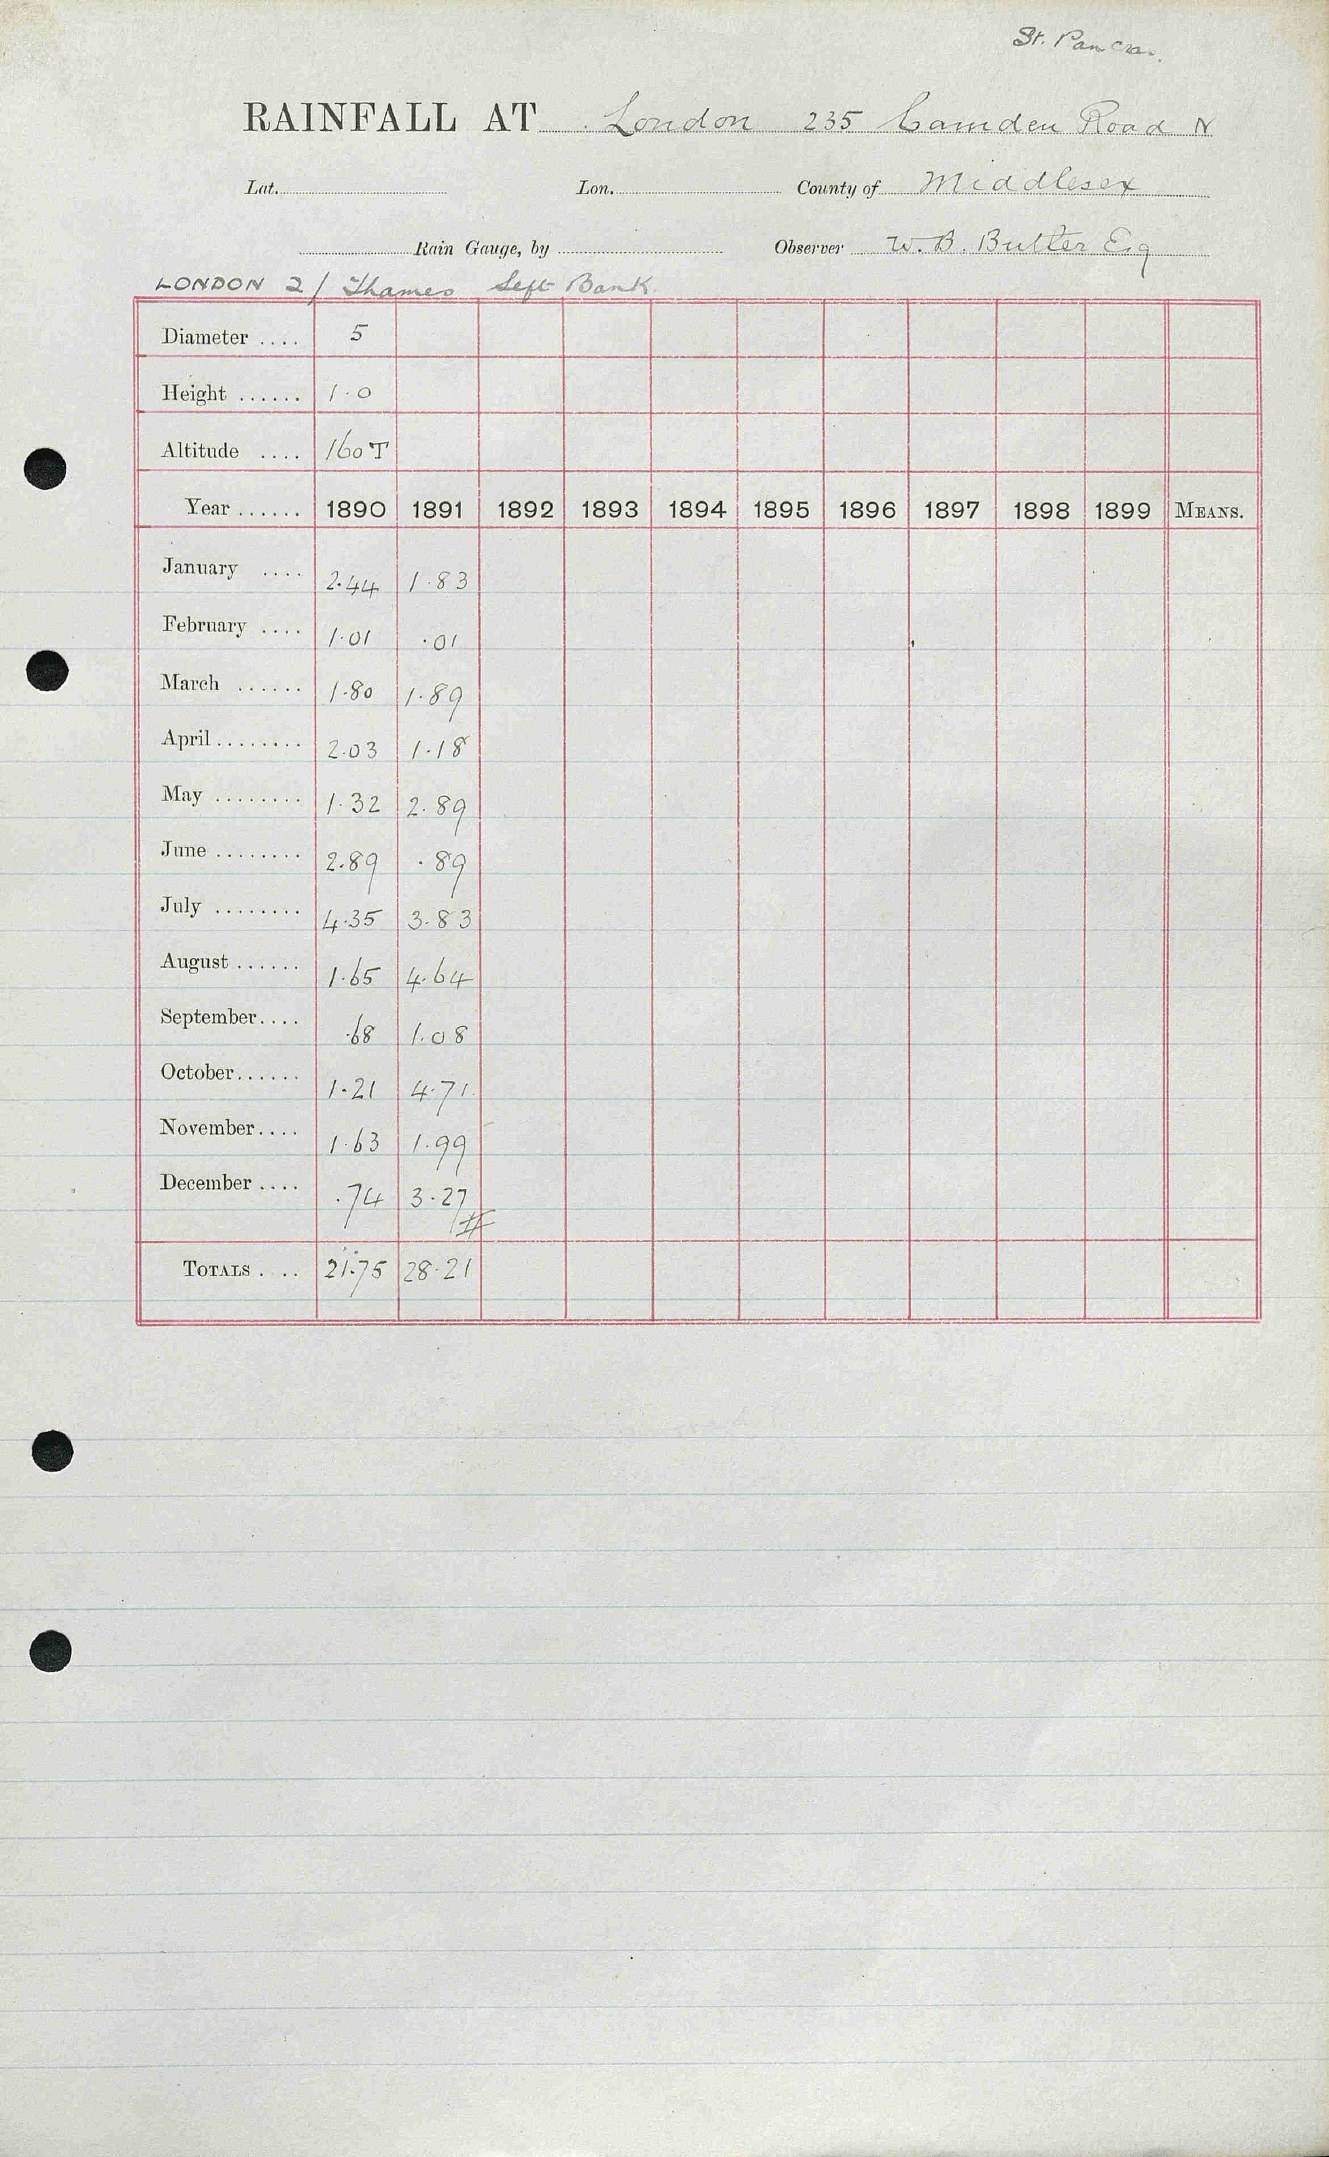 St. Pancras.
RAINFALL AT London 235 Camden Road N
Lat. Lon. County of Middlesex
Rain Gauge, by Observer W. B. Butler Esq
LONDON 2/ Thames Left Bank.
Diameter .... 5
Height ...... 1.0
Altitude .... 160 T
Year ...... 1890 1891 1892 1893 1894 1895 1896 1897 1898 1899 MEANS.
January .... 2.44 1.83
February .... 1.01 .01
March ...... 1.80 1.89
April ........ 2.03 1.18
May ........ 1.32 2.89
June ........ 2.89 .89
July ........ 4.35 3.83
August ...... 1.65 4.64
September .... .68 1.08
October ...... 1.21 4.71
November .... 1.63 1.99
December .... .74 3.27
TOTALS . .. 21.75 28.21